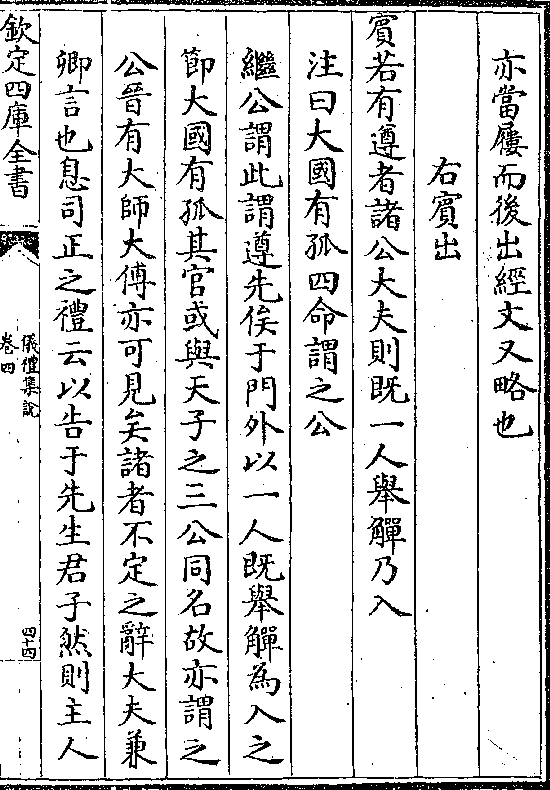 亦當屨而後出經文又略也
右賓出
賓若有遵者諸公大夫則既一人舉觶乃入
注曰大國有孤四命謂之公
繼公謂此謂遵先俟于門外以一人既舉觶為入之
節大國有孤其官或與天子之三公同名故亦謂之
公晉有大師大傅亦可見矣諸者不定之辭大夫兼
卿言也息司正之禮云以告于先生君子然則主人
欽定四庫全書
儀禮集說
卷四
四十四